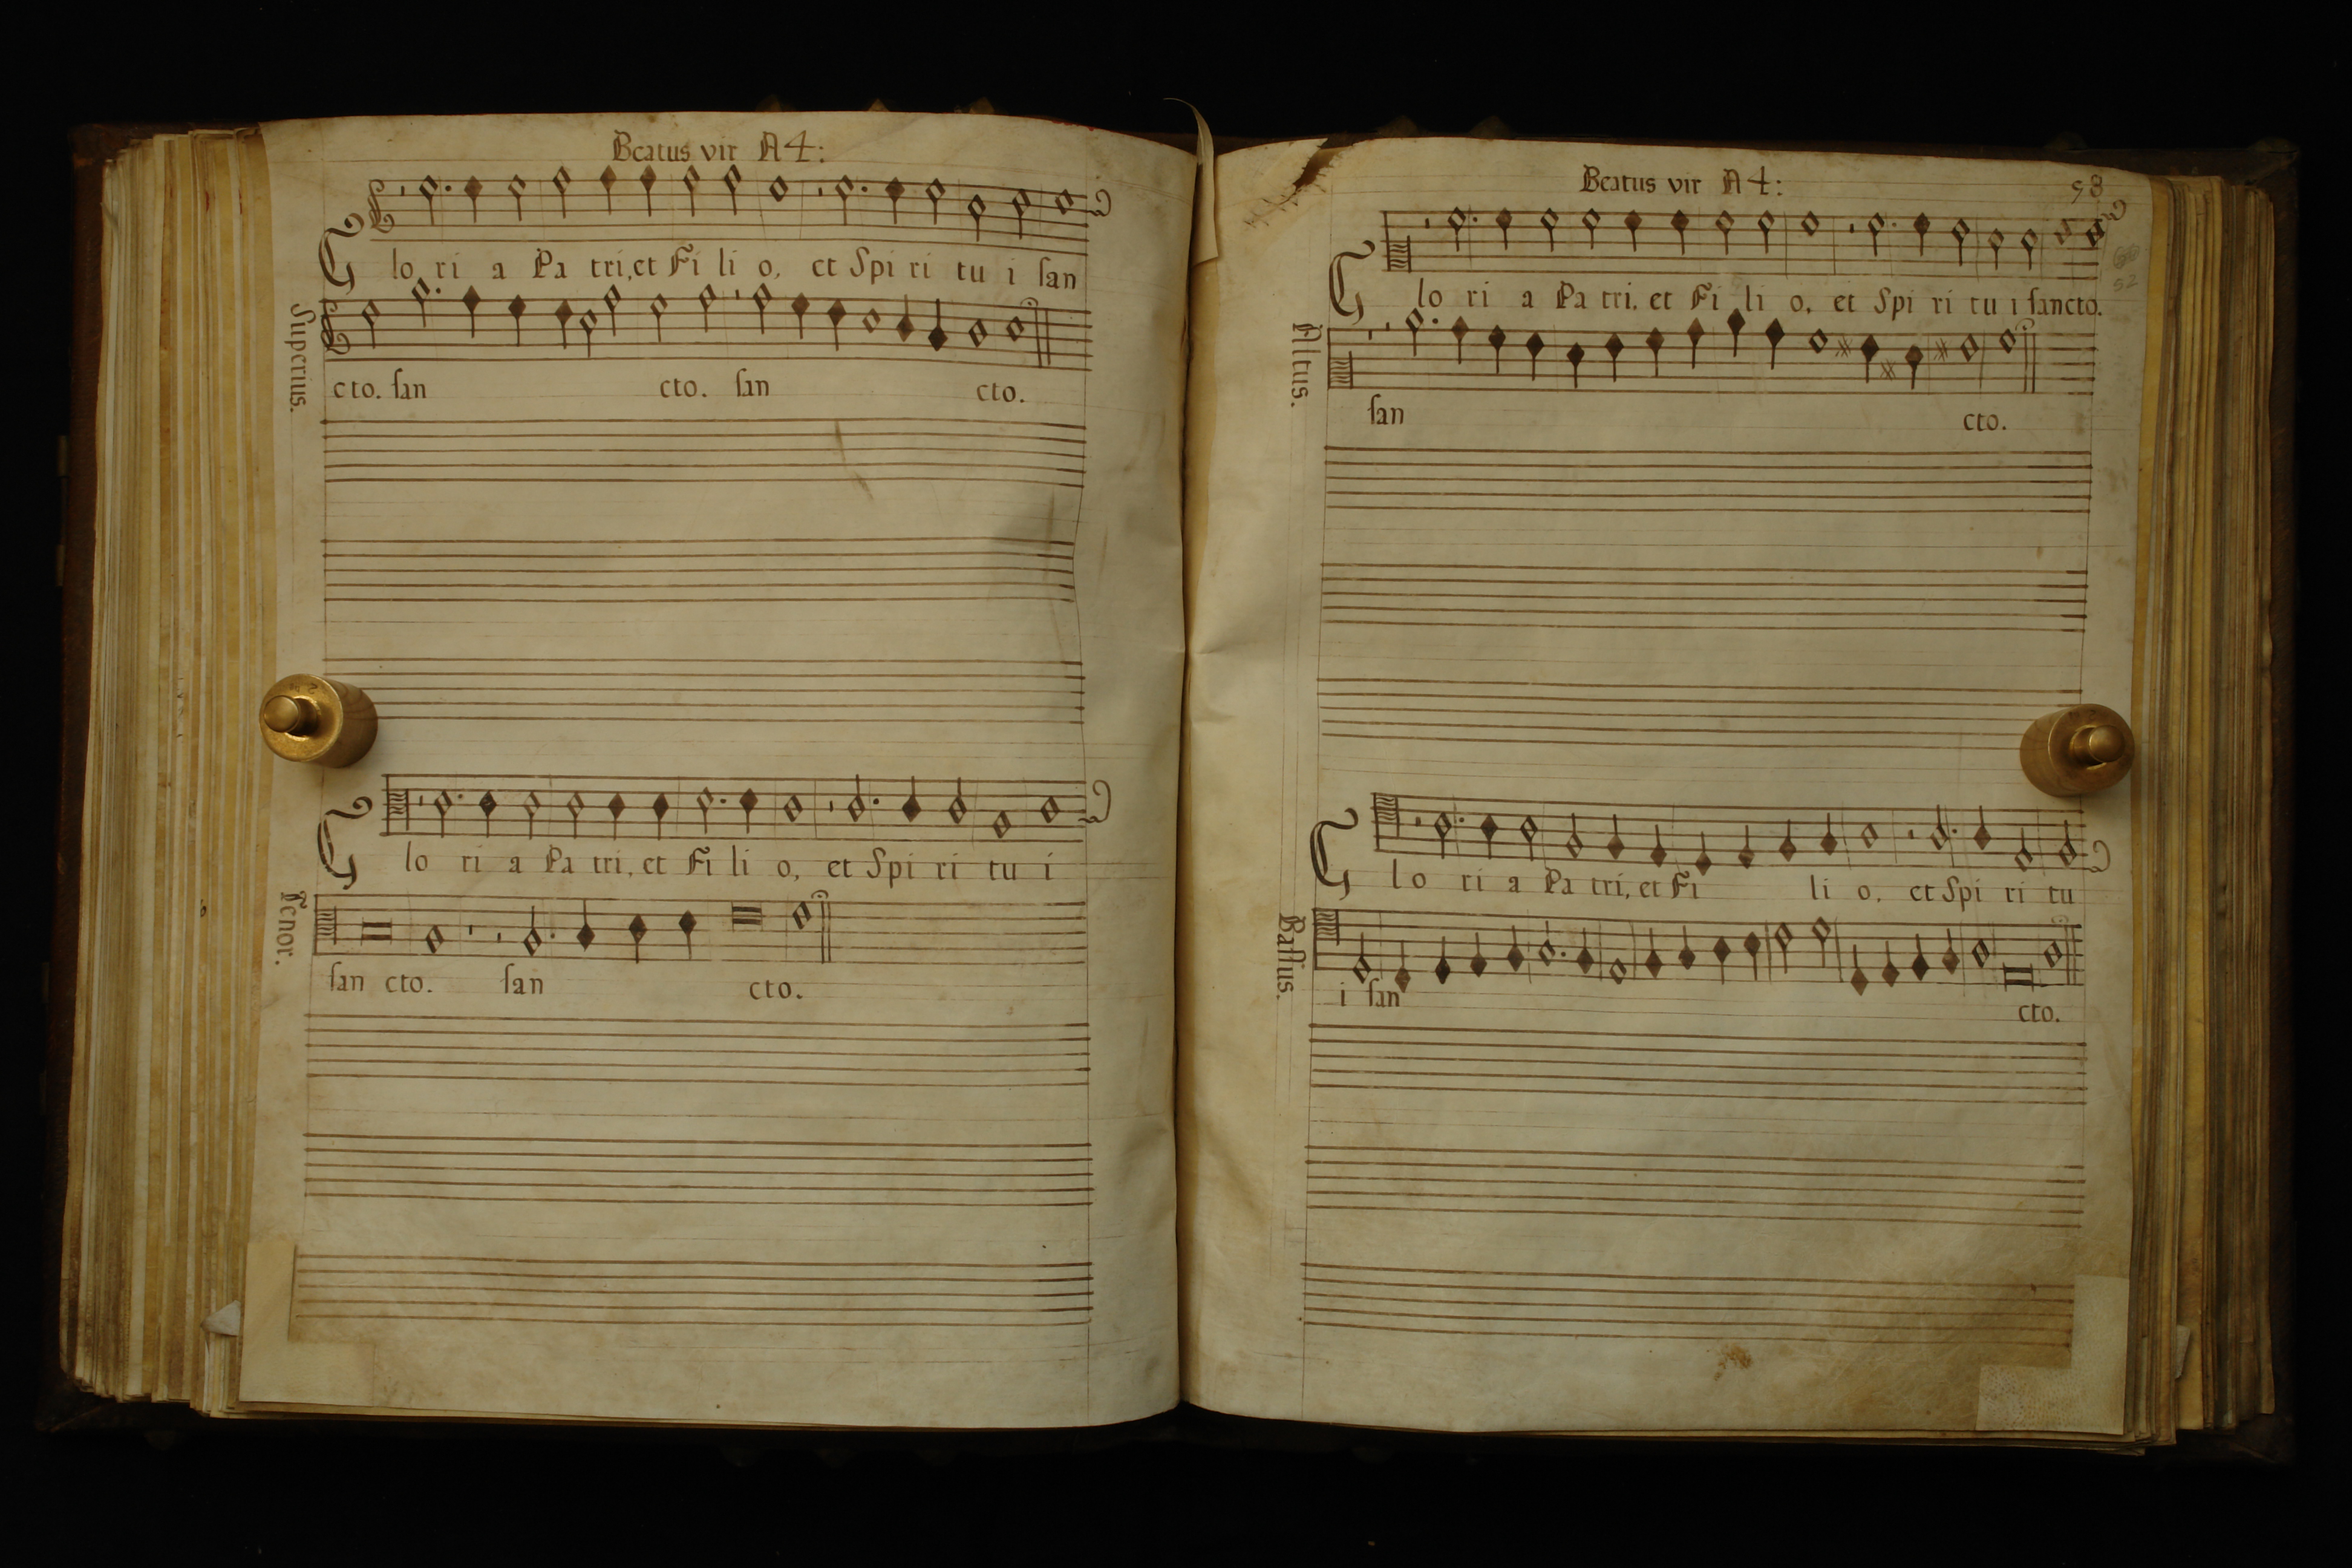 Beatus vir A 4:
Glo ri a Pa tri, et Fi li o, et Spi ri tu i ſan
Superius.
cto. ſan cto. ſan cto.
Glo ri a Pa tri, et Fi li o, et Spi ri tu i
Tenor.
ſan cto. ſan cto.
Beatus vir A 4:
98
Glo ri a Pa tri, et Fi li o, et Spi ri tu i ſancto.
52
Altus.
ſan cto.
Glo ri a Pa tri, et Fi li o, et Spi ri tu
Baſſus.
i ſan cto.